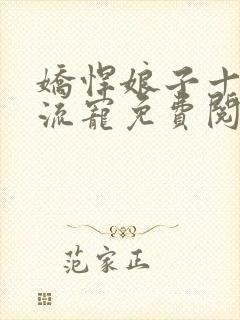 嬌悍娘子十
流寵免費閱
范家正